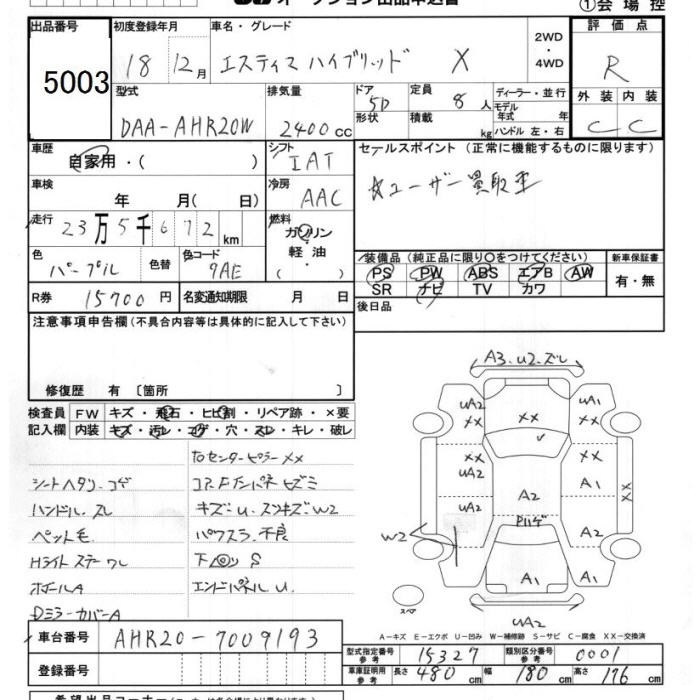 ①会場控
出品番号 5003
初度登録年月 18 12月
車名・グレード エスティマハイブリッド X
2WD・4WD
評価点 R
外装 C 内装 C
型式 DAA-AHR20W
排気量 2400cc
ドア 5D 形状
定員 8人 積載 kg
ディーラー・並行
モデル年式 年式
ハンドル 左・右
車歴 自家用・( )
シフト IAT
冷房 AAC
車検 年 月( 日)
走行 23万5千672km
燃料 ガソリン 軽油・( )
色 パープル 色替 色コード 9AE
R券 15700円 名変通知期限 月 日
セールスポイント(正常に機能するものに限ります)
☆ユーザー買取車
装備品(純正品に限り○をつけてください) 新車保証書
PS PW ABS エアB AW 有・無
SR ナビ TV カワ
後日品
注意事項申告欄(不具合内容等は具体的に記入して下さい)
修復歴 有〔箇所 〕
検査員 FW キズ・飛石・ヒビ割・リペア跡・×要
記入欄 内装 キズ・汚レ・コゲ・穴・スレ・キレ・破レ
右センターピラーXX
シートヘタリ・コゲ コアF.インパネヒズミ
ハンドル.スレ キズ・U.スソキズW2
ペット毛 パワスラ.不良
Hライトステーワレ S
ホイールA エンドパネルU.
DミラーカバーA
車台番号 AHR20-7009193
登録番号
A3.U2.ズレ
UA2 UA1
XX XX XX
XX XX
UA2 A1
UA2 A2 XX
W2 Pハゲ A2
A1 A1
スペア UA2
A-キズ E-エクボ U-凹み W-補修跡 S-サビ C-腐食 XX-交換済
型式指定番号 参考 15327 類別区分番号 参考 0001
車庫証明用 参考 長さ 480cm 幅 180cm 高さ 176cm